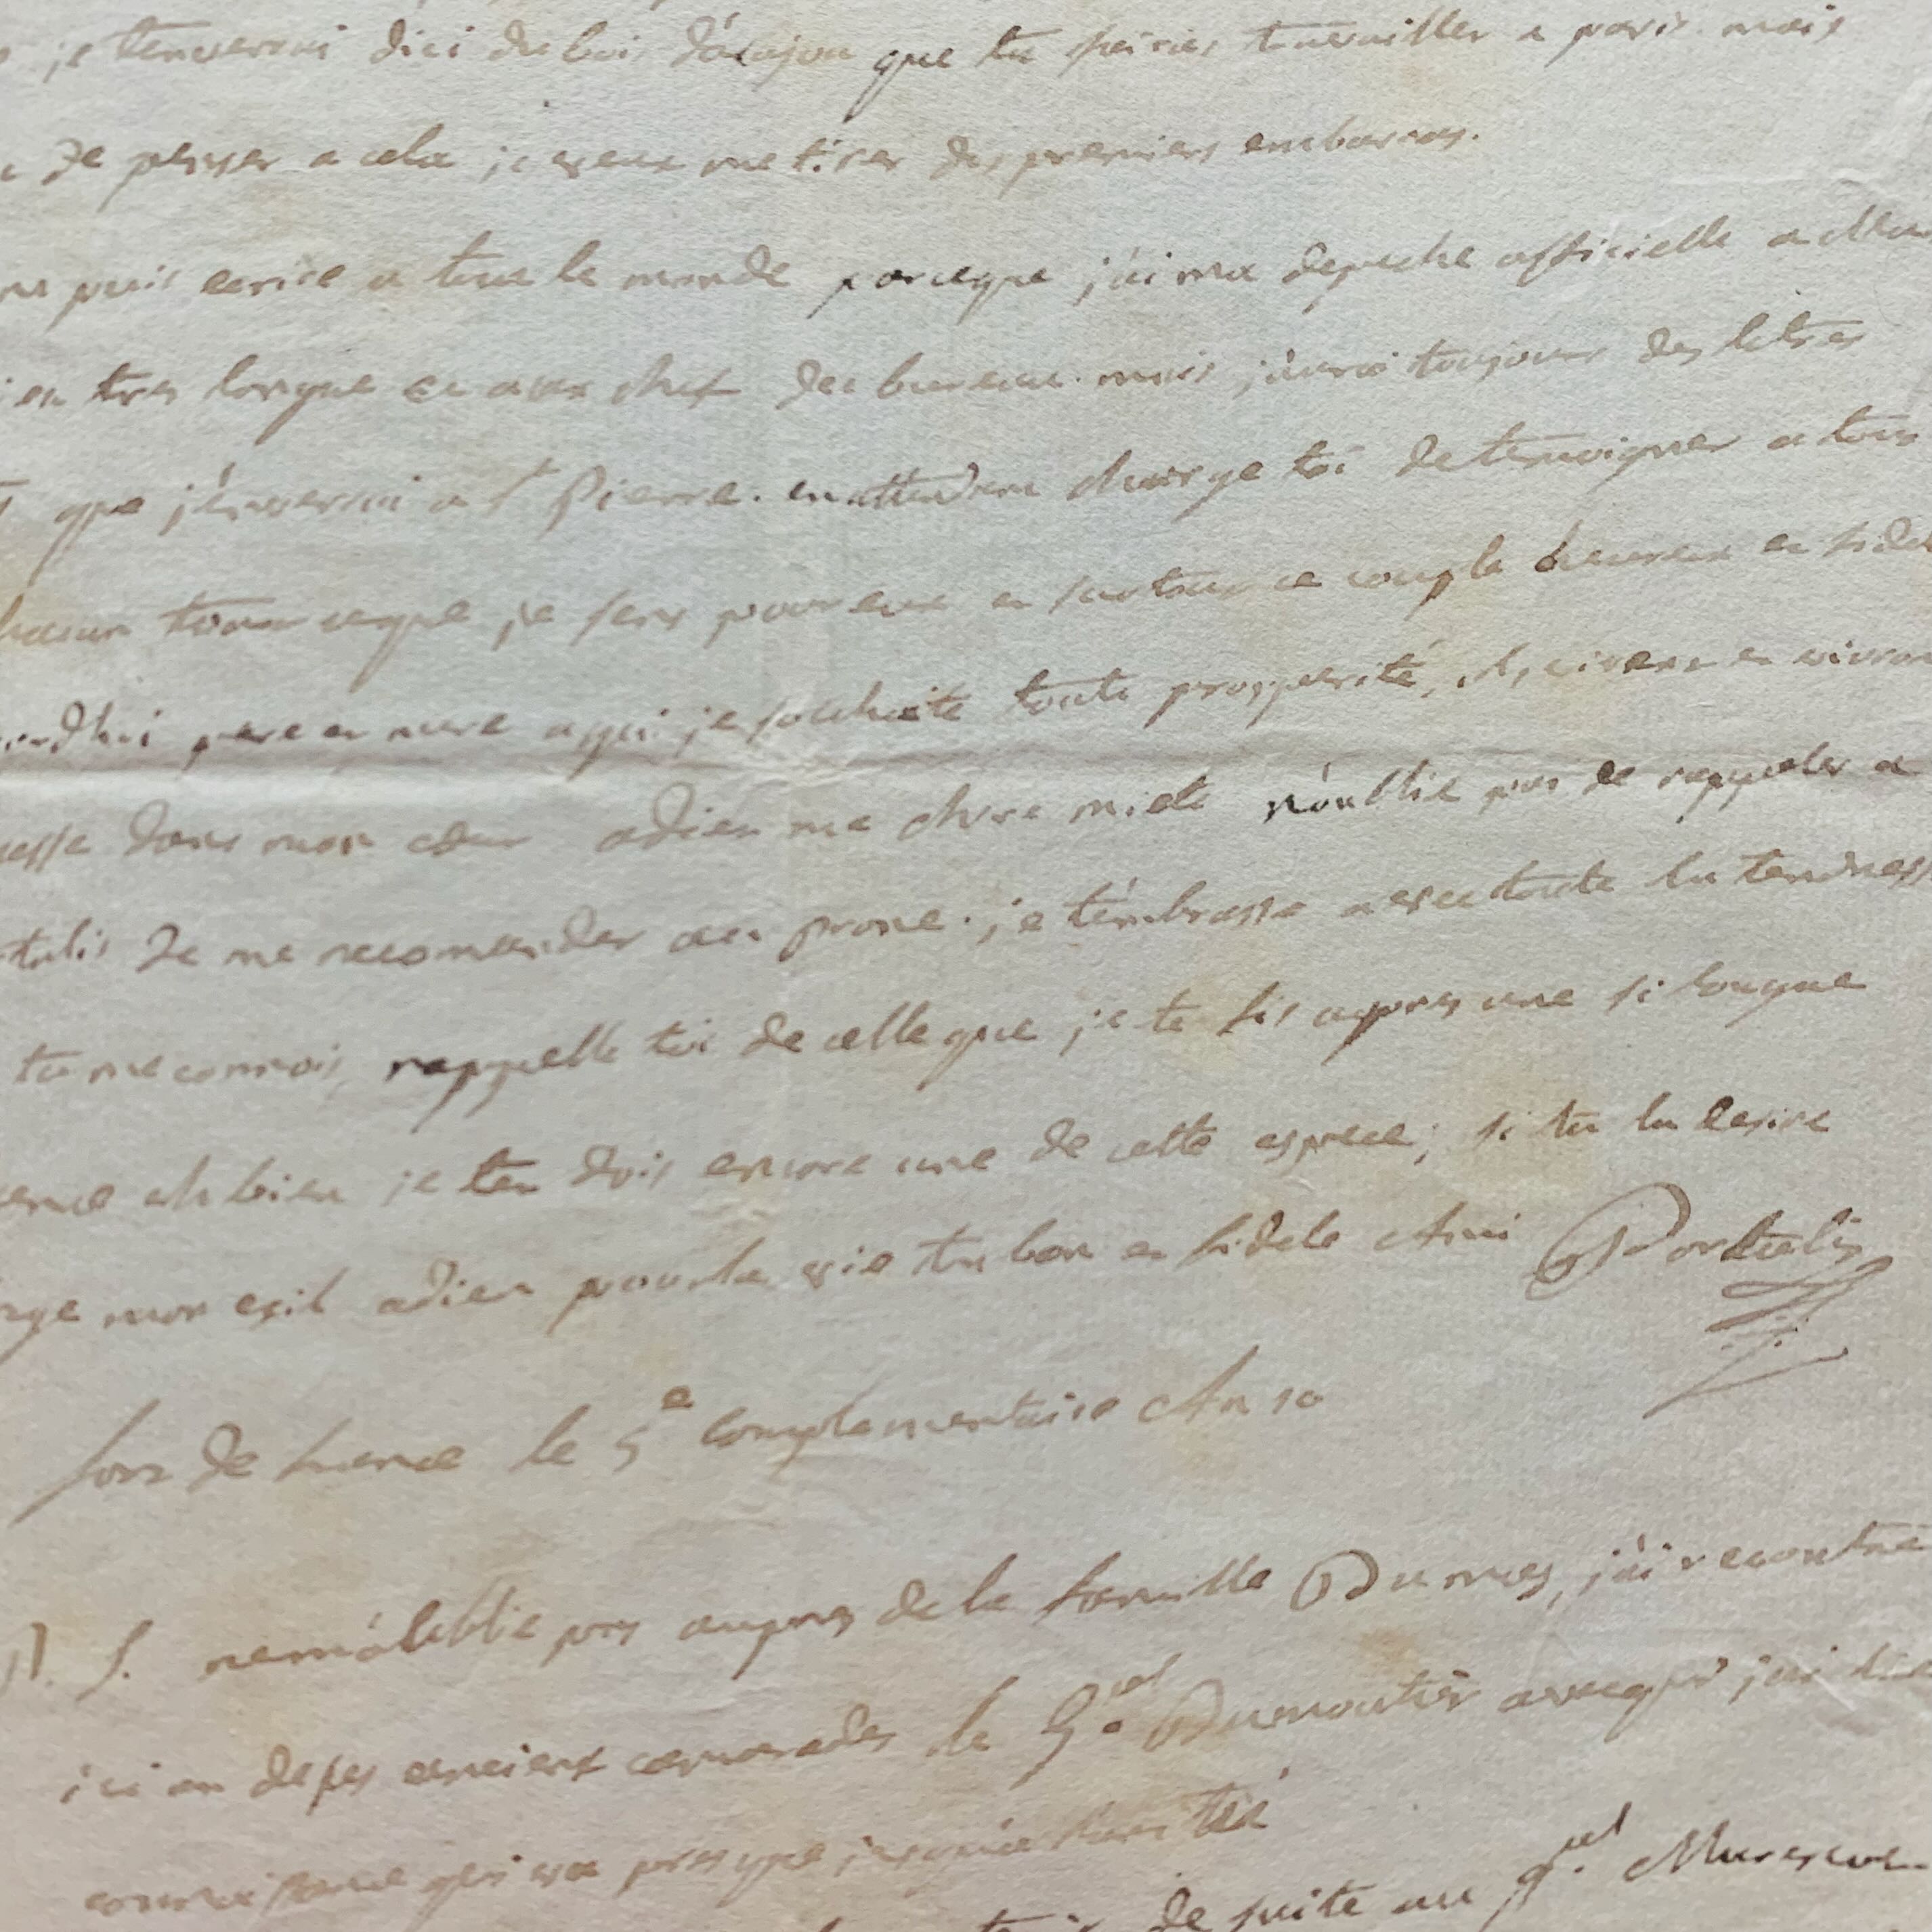 je tenverrai dici du bois dacajou que tu feries travailler a paris. mais
de penser a cela je veux me tirer des premiers embarras.
puis ecrire a tout le monde parceque j'ai ma depeche officielle a
en tres longue en aux chef des bureau. mais j'aurai toujours des letres
que j'enverrai a st Pierre. en attendant charge toi de temoigner a tous
tout ceque je sens pour eux en surtout ce couple heureux en fidel
pere en mere a qui je souhaite toute prosperité, ils vivent en vivron
dans mon cœur adieu ma chere miete n'oublie pas de rappeler a
talis de me recomander au prone. je t'embrasse avec toute la tendresse
tu me connois, rappelle toi de celle que je te fis apres une si longue
eh bien je ten dois encore une de cette espece; si tu la desire
mon exil adieu pour la vie ton bon en fidele Ami Portalis
fort de france le 5e complementaire An 10
P. S. ne m'oublie pas aupres de la famille Dumas, j'ai recontré
ici un de ses ancients camarades le Gal Dumoutier avec qui j'ai
connaissance qui va presque jusqu'a l'amitié
de suite au gal